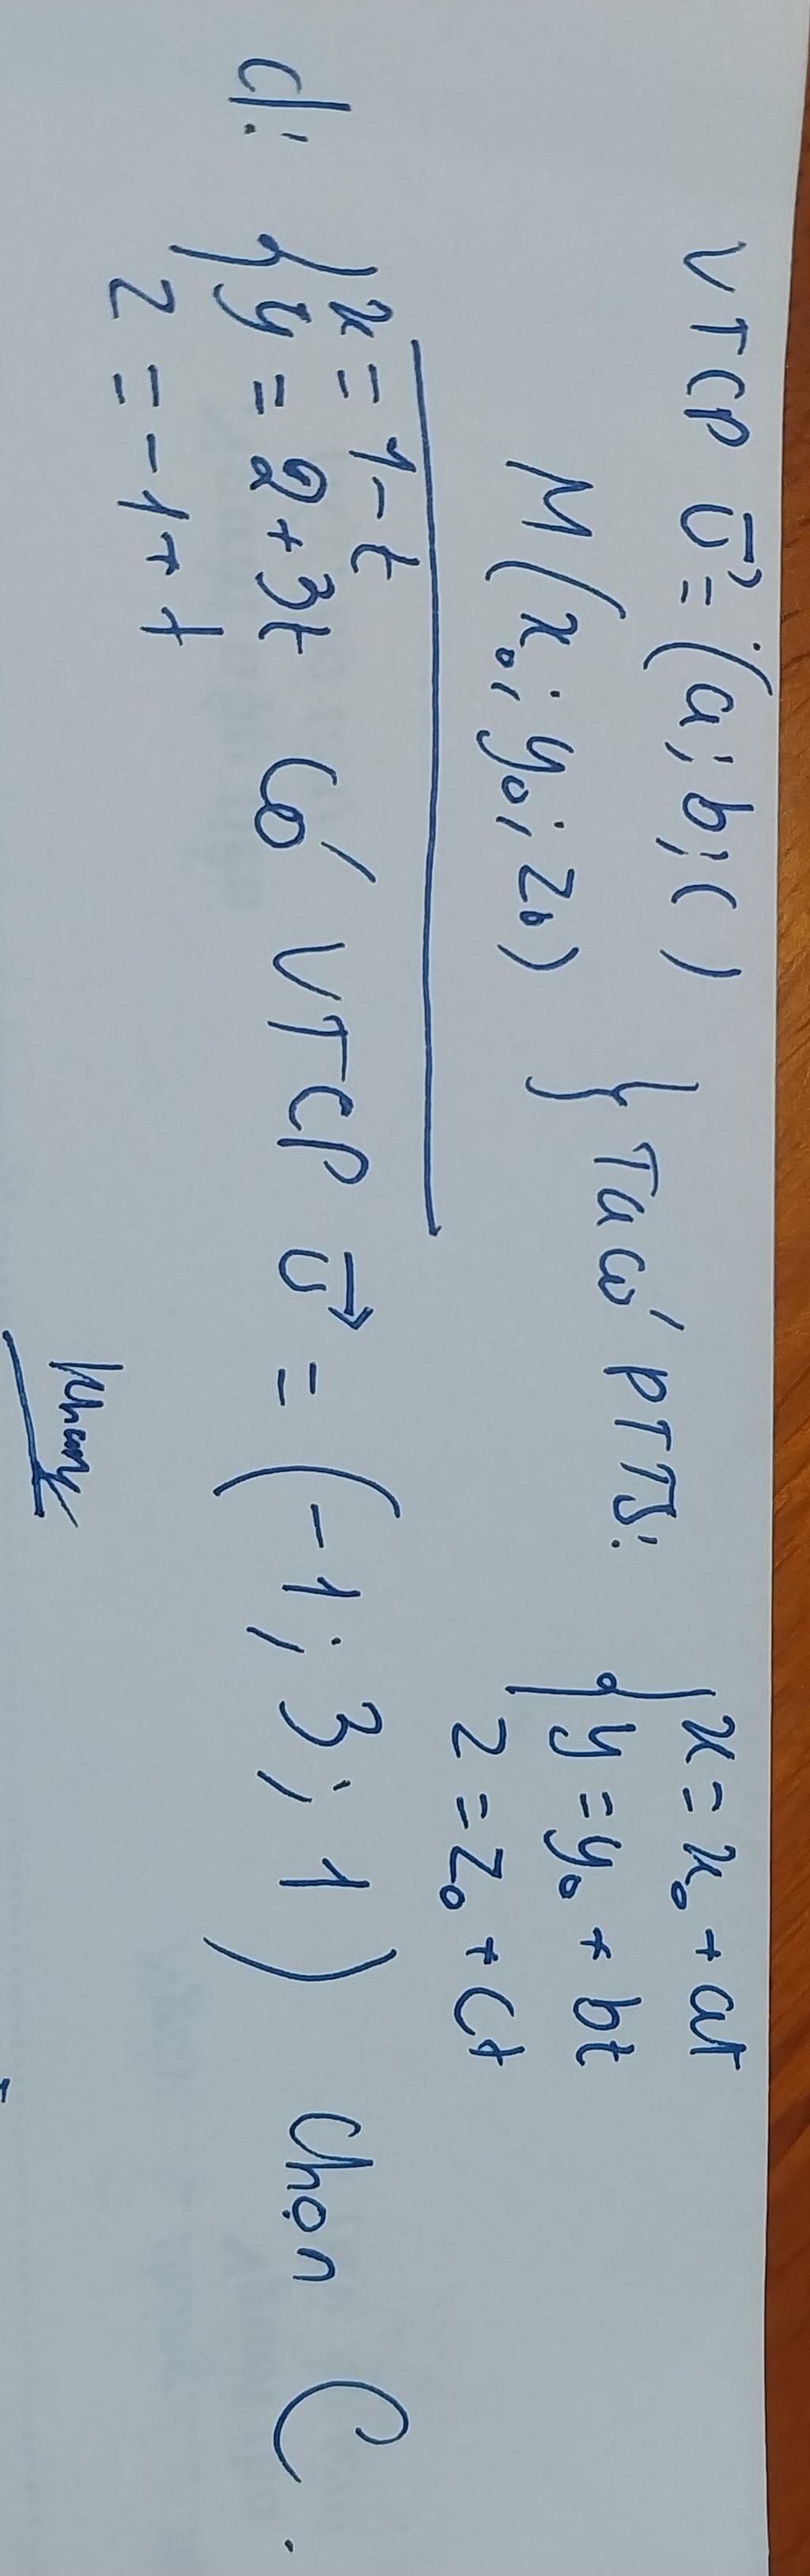 VTCP u⃗ = (a; b; c)
M(x₀; y₀; z₀) } Ta có PTTS: { x = x₀ + at
y = y₀ + bt
z = z₀ + ct
d: { x = 1 - t
y = 2 + 3t có VTCP u⃗ = (-1; 3; 1) Chọn C.
z = -1 + t